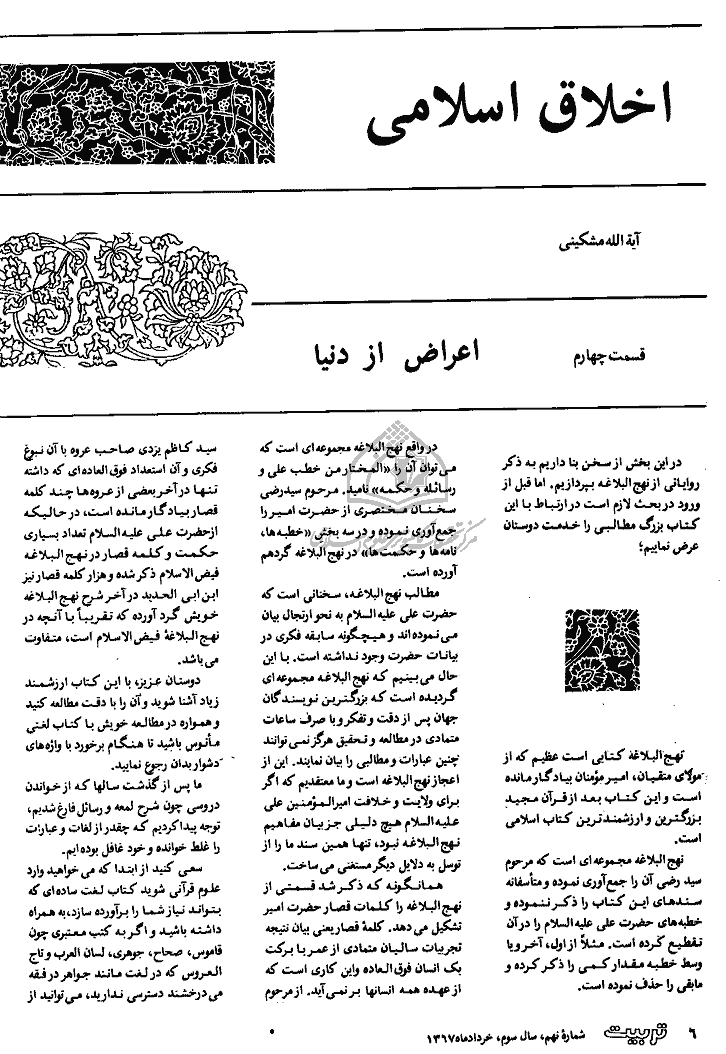 اخلاق اسلامی
آیة الله مشکینی
قسمت چهارم
اعراض از دنیا
در این بخش از سخن بنا داریم به ذکر
روایاتی از نهج البلاغه بپردازیم. اما قبل از
ورود در بحث لازم است در ارتباط با این
کتاب بزرگ مطالبی را خدمت دوستان
عرض نماییم؛
نهج البلاغه کتابی است عظیم که از
مولای متقیان، امیر مؤمنان بیادگار مانده
است و این کتاب بعد از قرآن مجید
بزرگترین و ارزشمندترین کتاب اسلامی
است.
نهج البلاغه مجموعه ای است که مرحوم
سید رضی آن را جمع آوری نموده و متأسفانه
سندهای این کتاب را ذکر ننموده و
خطبه های حضرت علی علیه السلام را در آن
تقطیع کرده است. مثلاً از اول، آخر و یا
وسط خطبه مقدار کمی را ذکر کرده و
مابقی را حذف نموده است.
در واقع نهج البلاغه مجموعه ای است که
می توان آن را «المختار من خطب علی و
رسائله و حکمه» نامید. مرحوم سید رضی
سخنان مختصری از حضرت امیر را
جمع آوری نموده و در سه بخش «خطبه ها،
نامه ها و حکمت ها» در نهج البلاغه گردهم
آورده است.
مطالب نهج البلاغه، سخنانی است که
حضرت علی علیه السلام به نحو ارتجال بیان
می نموده اند و هیچگونه سابقه فکری در
بیانات حضرت وجود نداشته است. با این
حال می بینیم که نهج البلاغه مجموعه ای
گردیده است که بزرگترین نویسندگان
جهان پس از دقت و تفکر و با صرف ساعات
متمادی در مطالعه و تحقیق هرگز نمی توانند
چنین عبارات و مطالبی را بیان نمایند. این از
اعجاز نهج البلاغه است و ما معتقدیم که اگر
برای ولایت و خلافت امیرالمؤمنین علی
علیه السلام هیچ دلیلی جز بیان مفاهیم
نهج البلاغه نبود، تنها همین سند ما را از
توسل به دلایل دیگر مستغنی می ساخت.
همانگونه که ذکر شد قسمتی از
نهج البلاغه را کلمات قصار حضرت امیر
تشکیل می دهد. کلمۀ قصار یعنی بیان نتیجه
تجربیات سالیان متمادی از عمر با برکت
یک انسان فوق العاده و این کاری است که
از عهده همه انسانها بر نمی آید. از مرحوم
سید کاظم یزدی صاحب عروه با آن نبوغ
فکری و آن استعداد فوق العاده ای که داشته
تنها در آخر بعضی از عروه ها چند کلمه
قصار بیادگار مانده است، در حالیکه
از حضرت علی علیه السلام تعداد بسیاری
حکمت و کلمه قصار در نهج البلاغه
فیض الاسلام ذکر شده و هزار کلمه قصار نیز
ابن ابی الحدید در آخر شرح نهج البلاغه
خویش گرد آورده که تقریباً با آنچه در
نهج البلاغۀ فیض الاسلام است، متفاوت
می باشد.
دوستان عزیز، با این کتاب ارزشمند
زیاد آشنا شوید و آن را با دقت مطالعه کنید
و همواره در مطالعه خویش با کتاب لغتی
مأنوس باشید تا هنگام برخورد با واژه های
دشوار بدان رجوع نمایید.
ما پس از گذشت سالها که از خواندن
دروسی چون شرح لمعه و رسائل فارغ شدیم،
توجه پیدا کردیم که چقدر از لغات و عبارات
را غلط خوانده و خود غافل بوده ایم.
سعی کنید از ابتدا که می خواهید وارد
علوم قرآنی شوید کتاب لغت ساده ای که
بتواند نیاز شما را برآورده سازد، به همراه
داشته باشید و اگر به کتب معتبری چون
قاموس، صحاح، جوهری، لسان العرب و تاج
العروس که در لغت مانند جواهر در فقه
می درخشند دسترسی ندارید، می توانید از
۶ تربیت شمارۀ نهم، سال سوم، خرداد ماه ۱۳۶۷